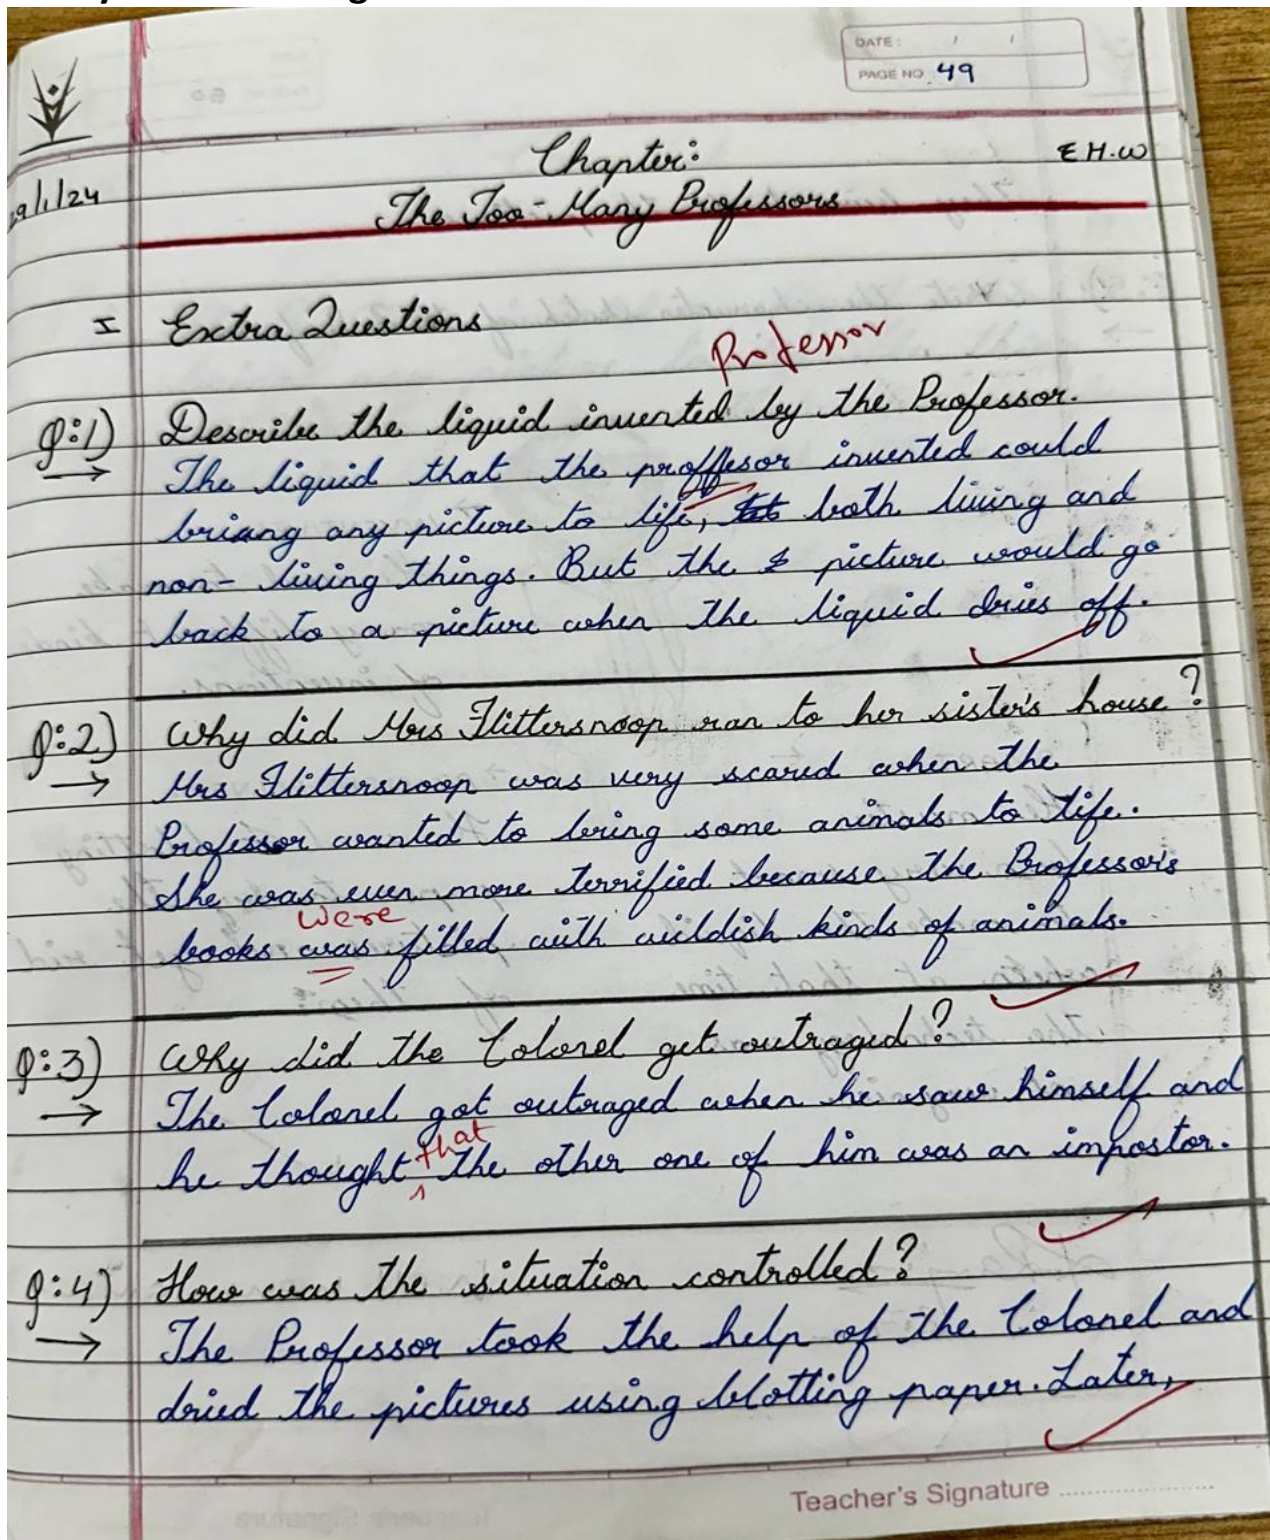 DATE : / /
PAGE NO 49
Chapter:
E H.W
9/1/24
The Too-Many Professors
I Extra Questions
Professor
Q:1) Describe the liquid invented by the Professor.
→ The liquid that the proffesor invented could
briang any picture to life, both living and
non- living things. But the picture would go
back to a picture when the liquid dries off.
Q:2) Why did Mrs Flittersnoop ran to her sister's house?
→ Mrs Flittersnoop was very scared when the
Professor wanted to bring some animals to life.
She was even more terrified because the Professor's
were
books was filled with wildish kinds of animals.
Q:3) Why did the Colonel get outraged?
→ The Colonel got outraged when he saw himself and
that
he thought the other one of him was an impostor.
Q:4) How was the situation controlled?
→ The Professor took the help of the Colonel and
dried the pictures using blotting paper. Later,
Teacher's Signature